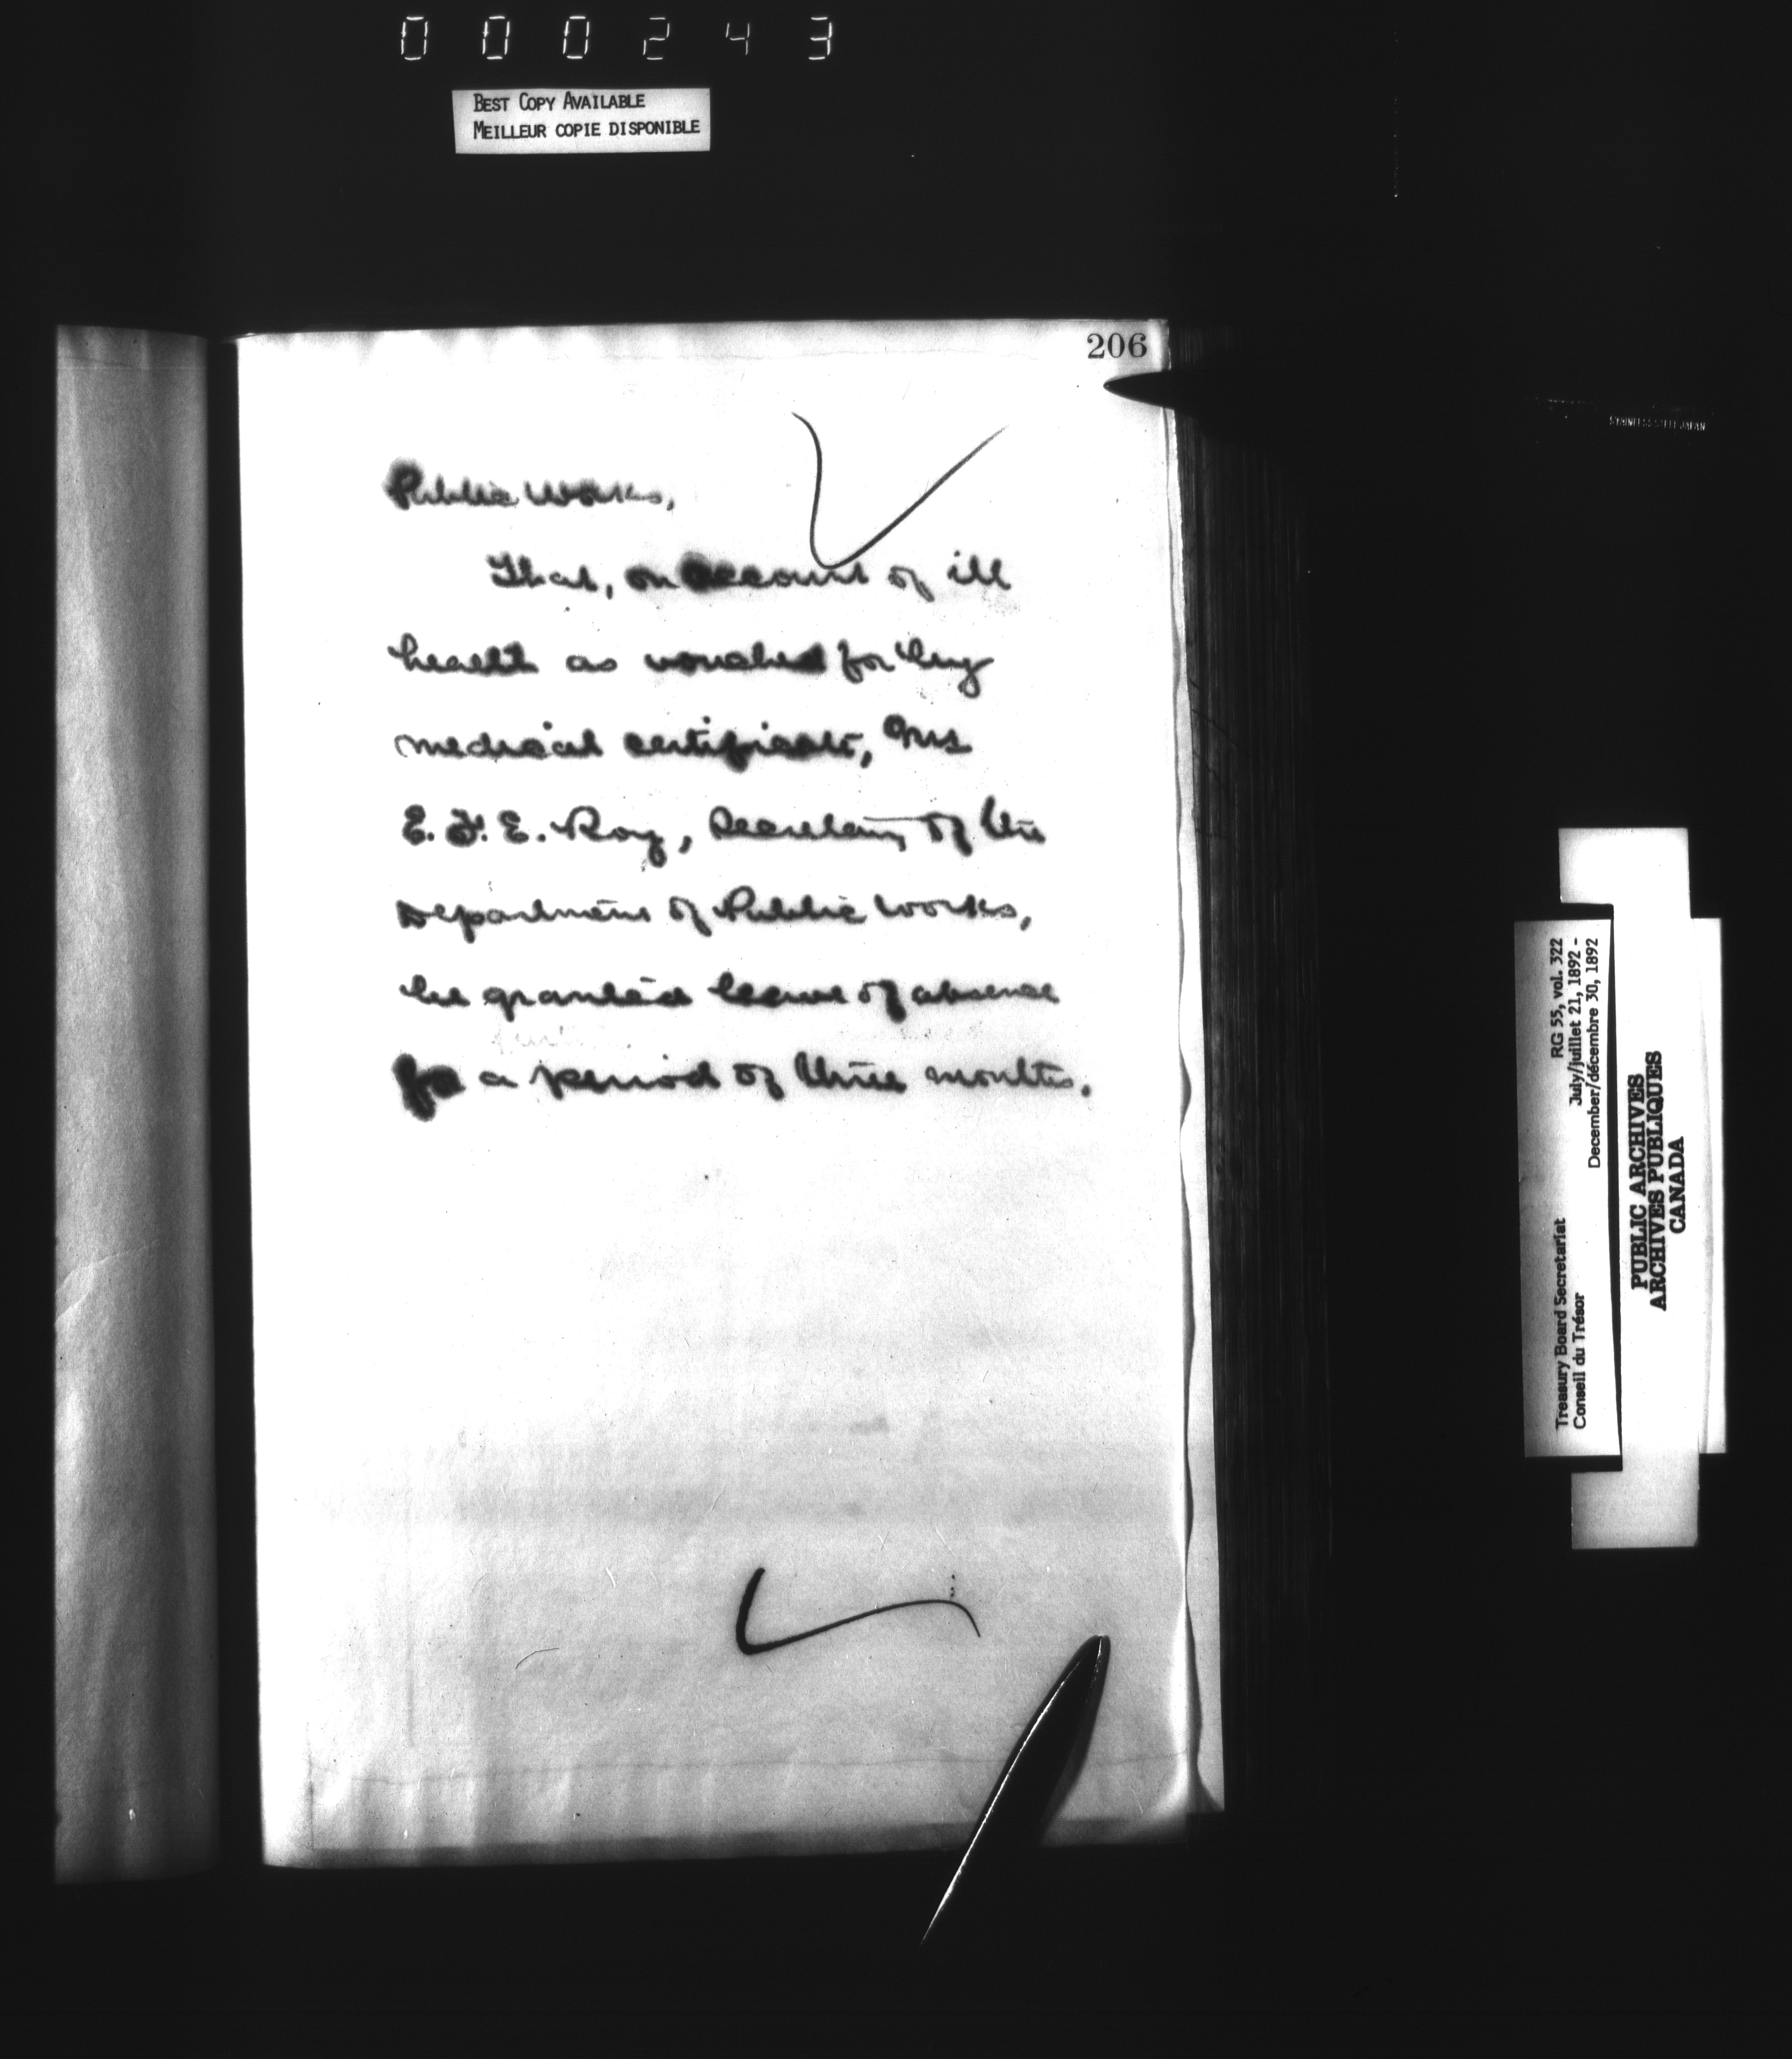 000243
BEST COPY AVAILABLE
MEILLEUR COPIE DISPONIBLE
206
Public Works,
That, on account of ill
health as vouched for by
medical certificate, Mr
E. F. E. Roy, Secretary of the
Department of Public Works,
be granted leave of absence
for a period of three months.
STAINLESS STEEL JAPAN
RG 55, vol. 322
July/juillet 21, 1892 -
December/décembre 30, 1892
Treasury Board Secretariat
Conseil du Trésor
PUBLIC ARCHIVES
ARCHIVES PUBLIQUES
CANADA